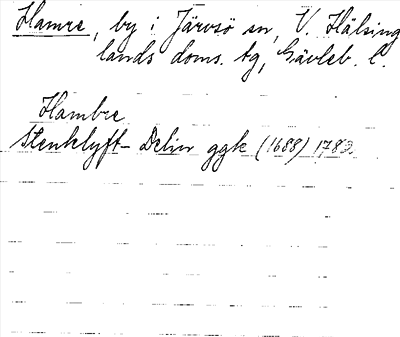 Hamre, by i Järvsö sn, V. Hälsing
lands doms. tg, Gävleb. l.
Hambre
Stenklyft- Delin ggk (1688) 1782